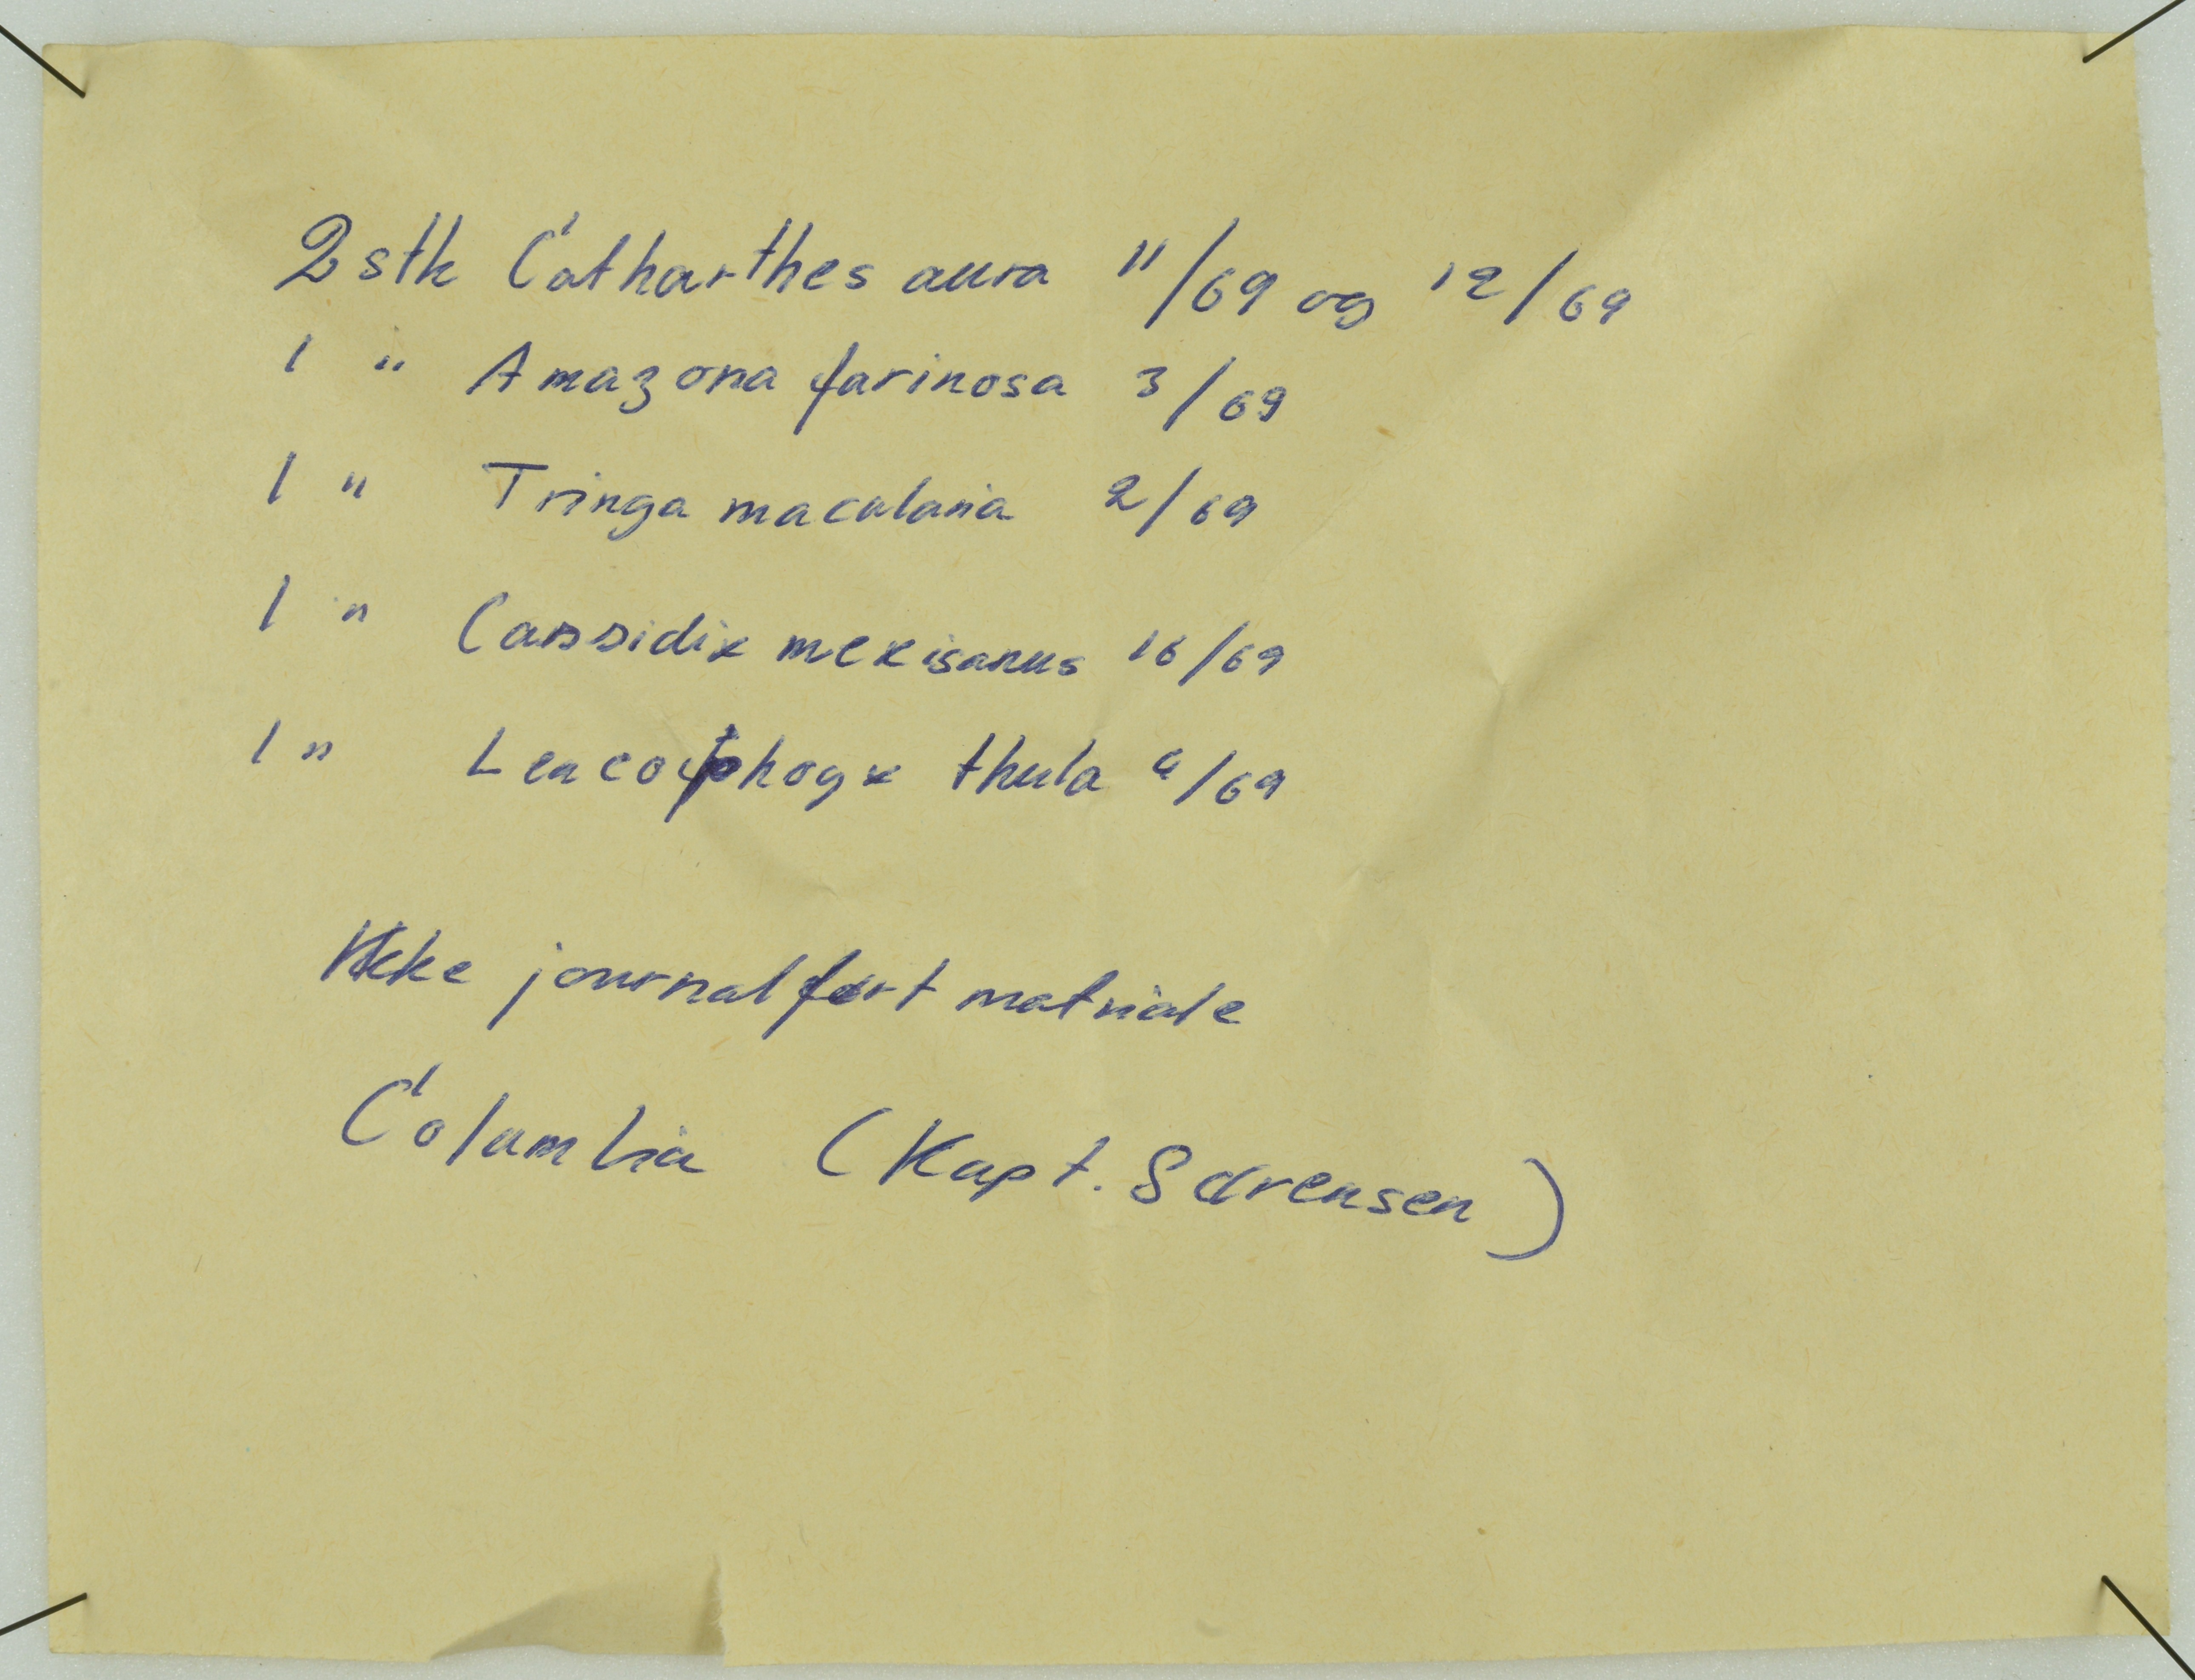 2 stk Catharthes aura 11/69 og 12/69
1 " Amazona farinosa 3/69
1 " Tringa macularia 2/69
1 " Cassidix mexisanus 16/69
1 " thula /69
Ikke journalført matriale
Columbia (Kapt. Sørensen)